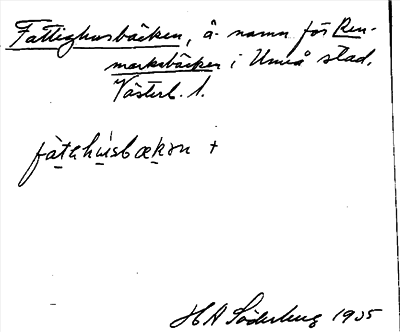 Fattighusbäcken, ä. namn för Ren-
marksbäcken i Umeå stad,
Västerb. l.
fàtihúsbækən +
H A Söderberg 1935